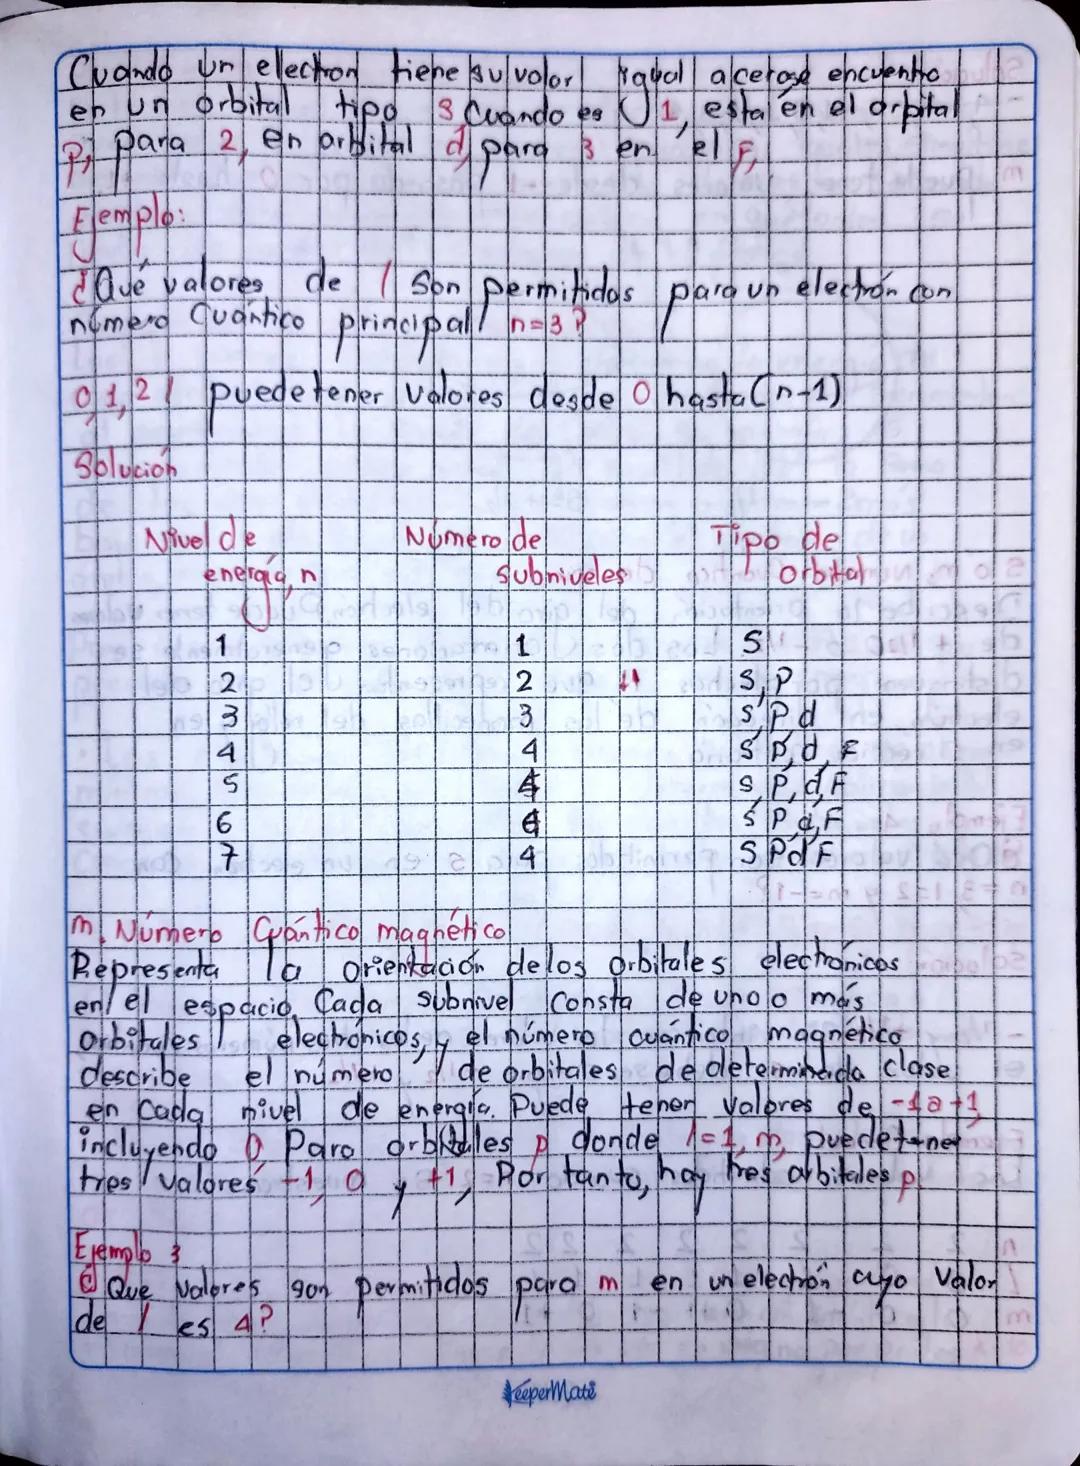 Cuando un electron tiene su valor igual a cerose encuentro
en un orbital tipo s Cuando es 1, esta en el orbital
p, para 2, en orbital d, para 3 en el F,
Ejemplo:
¿Qué valores de l Son permitidos para un electrón con
número Cuántico principal n=3?
0,1,2 l puede tener valores desde 0 hasta (n-1)
Solución
Nivel de energía, n
Número de subniveles
Tipo de orbital
1 1 S
2 2 S, P
3 3 S, P, d
4 4 S P, d, F
5 4 S, P, d, F
6 4 S P d, F
7 4 S P d F
m. Número Cuántico magnético
Representa la orientación delos orbitales electrónicos
en el espacio. Cada subnivel Consta de uno o más
Orbitales electrónicos, y el número cuántico magnético
describe el número de orbitales de determinada clase
en Cada nivel de energía. Puede tener valores de -1 a +1
incluyendo 0 Para orbitales p donde l=1, m, puede tener
tres valores -1, 0 y +1, Por tanto, hay tres orbitales p.
Ejemplo 3
¿Que valores son permitidos para m en un electrón cuyo Valor
de l es 4?
KeeperMate